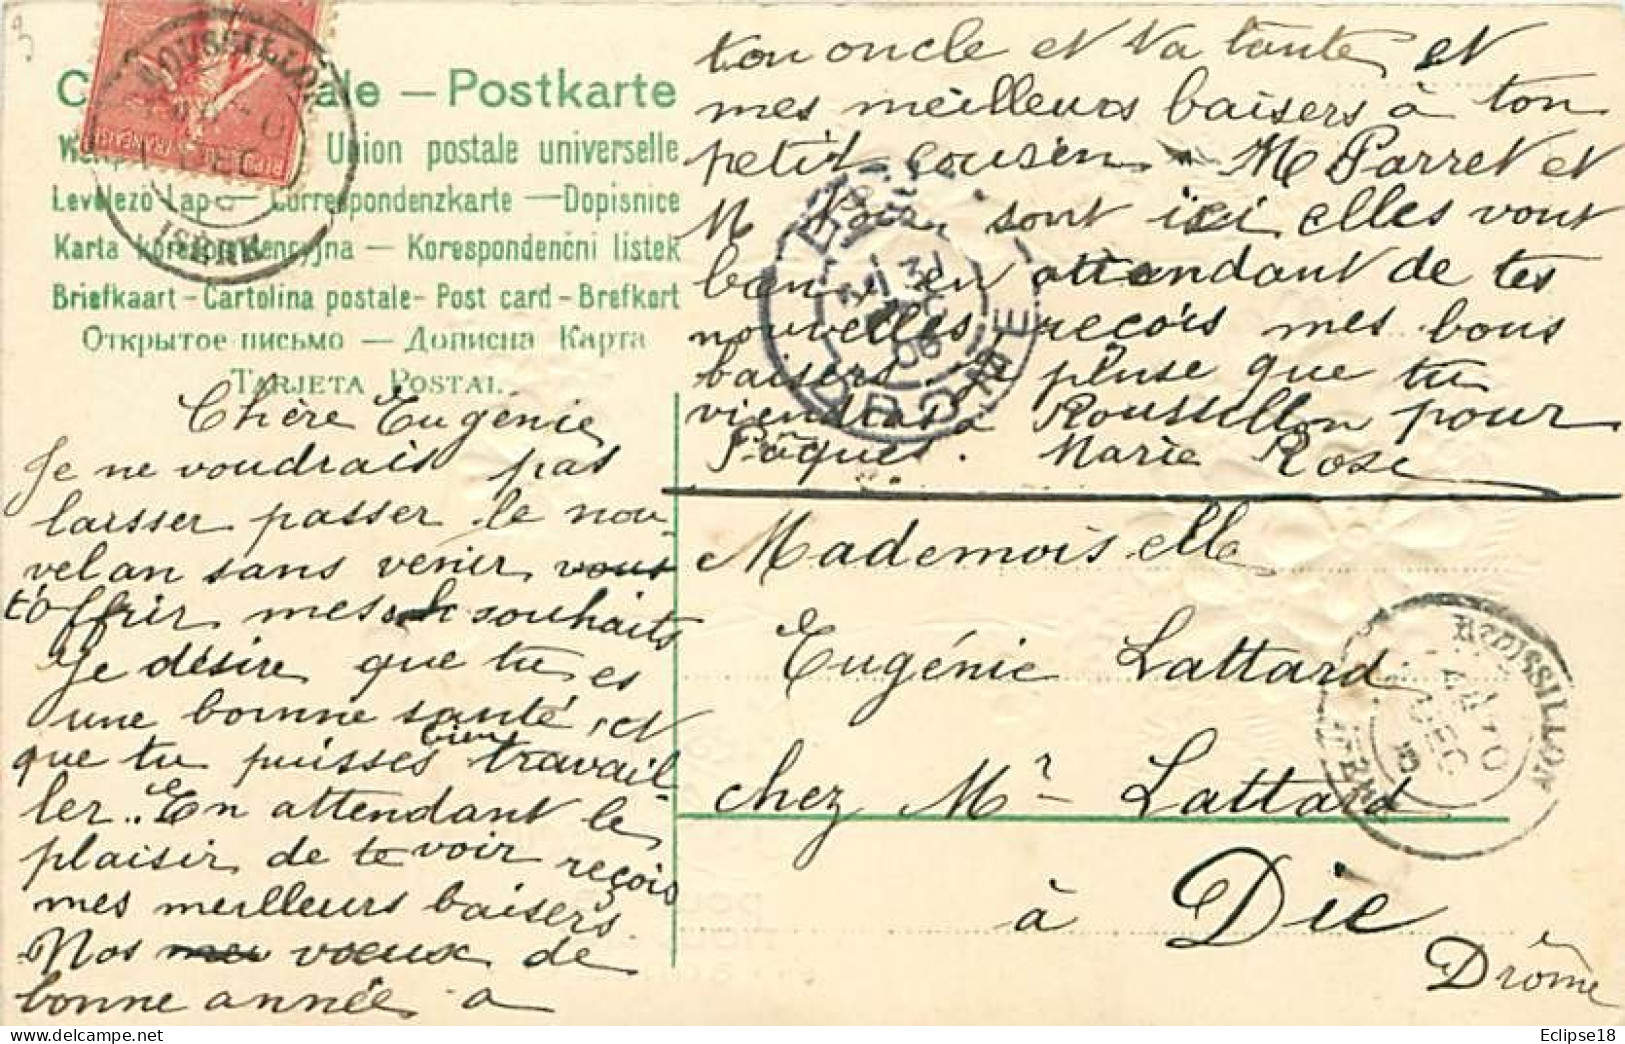 3
ROUSSILLON
ISÈRE
ale — Postkarte
Union postale universelle
Levelezö Lap — Correspondenzkarte — Dopisnice
Karta korespondencyjna — Korespondenčni listek
Briefkaart - Cartolina postale - Post card - Brefkort
Открытое письмо — Дописна Карта
TARJETA POSTAL.
Chère Eugénie
Je ne voudrais pas
laisser passer le nou
vel an sans venir vous
t'offrir mes souhaits
Je désire que tu es
une bonne santé, et
que tu puisses bien travail
ler.. En attendant le
plaisir de te voir reçois
mes meilleurs baisers.
Nos voeux de
bonne année a
ton oncle et ta tante et
mes meilleurs baisers à ton
petit cousin. M Parret et
M sont ici elles vont
bien, en attendant de tes
nouvelles, recois mes bons
baisers. Je pense que tu
viendras a Roussillon pour
Pâques. Marie Rose
DIE
31
DEC
06
DROME
Mademoiselle
Eugénie Lattard
chez Mr Lattard
à Die
Drôme
ROUSSILLON
DEC
ISÈRE
Eclipse18